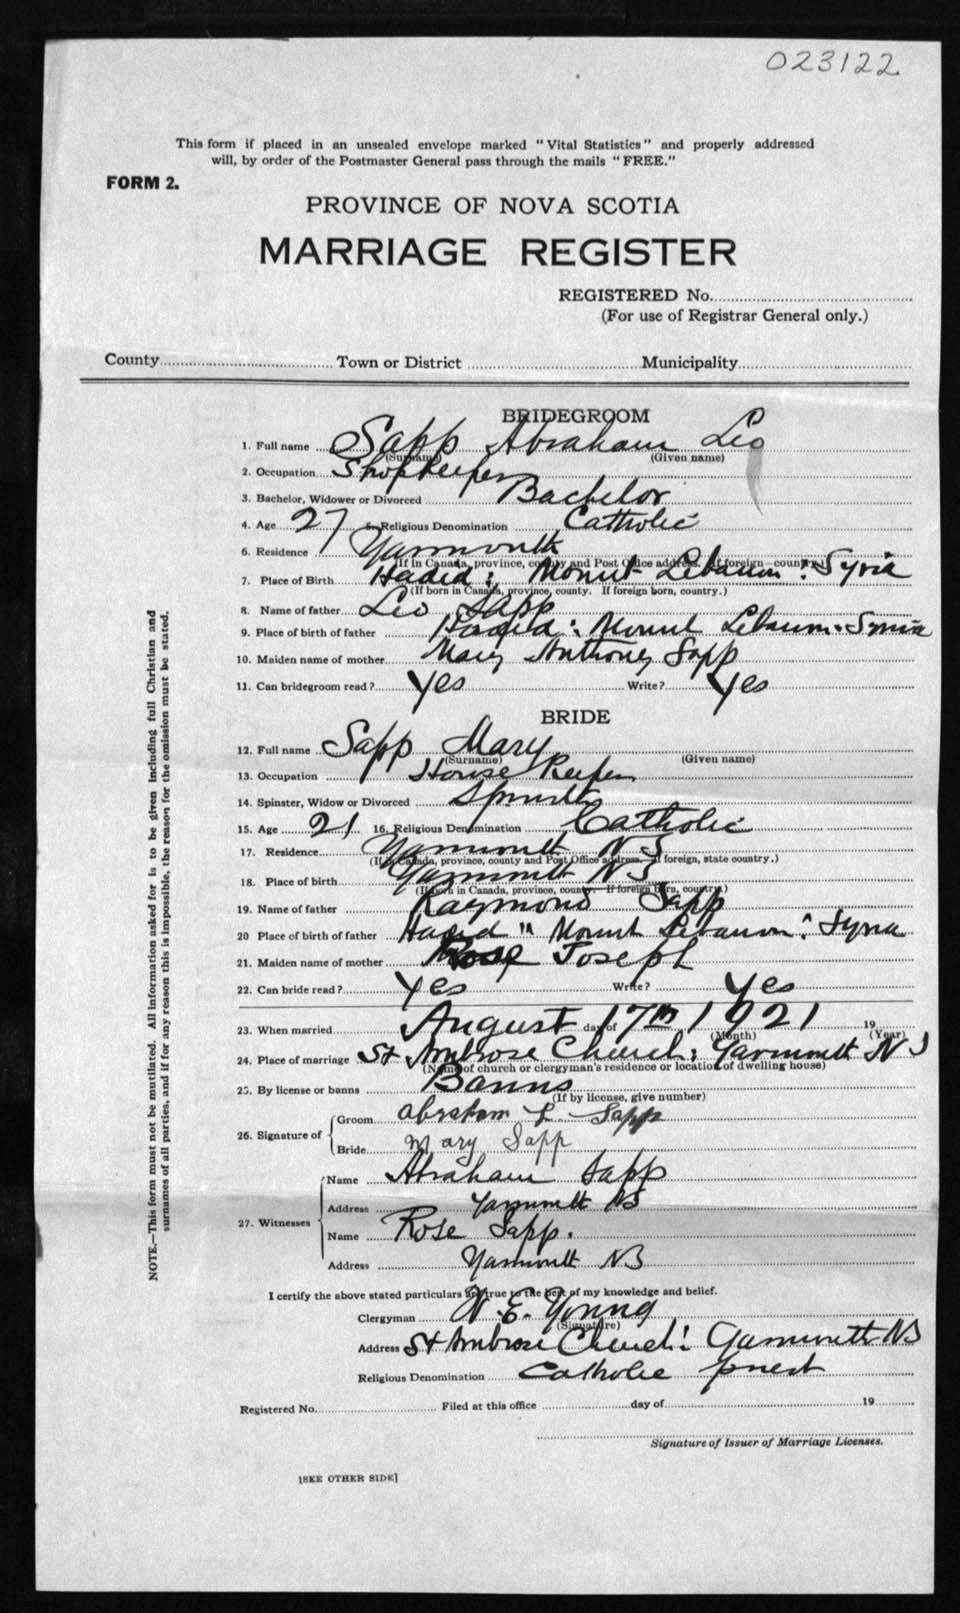 023122
This form if placed in an unsealed envelope marked "Vital Statistics" and properly addressed
will, by order of the Postmaster General pass through the mails "FREE."
FORM 2.
PROVINCE OF NOVA SCOTIA
MARRIAGE REGISTER
REGISTERED No.
(For use of Registrar General only.)
County Town or District Municipality
BRIDEGROOM
1. Full name Sapp Abraham Leo
(Surname) (Given name)
2. Occupation Shopkeeper
3. Bachelor, Widower or Divorced Bachelor
4. Age 27 5. Religious Denomination Catholic
6. Residence Yarmouth
(If in Canada, province, county and Post Office address. If foreign country.)
7. Place of Birth Haded: Mount Lebanon: Syria
(If born in Canada, province, county. If foreign born, country.)
8. Name of father Leo Sapp
9. Place of birth of father Haded: Mount Lebanon. Syria
10. Maiden name of mother Mary Anthony Sapp
11. Can bridegroom read? Yes Write? Yes
BRIDE
12. Full name Sapp Mary
(Surname) (Given name)
13. Occupation House Keeper
14. Spinster, Widow or Divorced Spinster
15. Age 21 16. Religious Denomination Catholic
17. Residence Yarmouth NS
(If in Canada, province, county and Post Office address. If foreign, state country.)
18. Place of birth Yarmouth NS
(If born in Canada, province, county. If foreign born, country.)
19. Name of father Raymond Sapp
20 Place of birth of father Haded " Mount Lebanon: Syria
21. Maiden name of mother Rose Joseph
22. Can bride read? Yes Write? Yes
23. When married August day of 17th 1921 19
(Month) (Year)
24. Place of marriage St Ambrose Church: Yarmouth NS
(Name of church or clergyman's residence or location of dwelling house)
25. By license or banns Banns
(If by license, give number)
26. Signature of
Groom abraham L. Sapp
Bride Mary Sapp
27. Witnesses
Name Abraham Sapp
Address Yarmouth NS
Name Rose Sapp.
Address Yarmouth NS
I certify the above stated particulars are true to the best of my knowledge and belief.
Clergyman W. E. Young
(Signature)
Address St Ambrose Church: Yarmouth NS
Religious Denomination Catholic priest
Registered No. Filed at this office day of 19
Signature of Issuer of Marriage Licenses.
[SEE OTHER SIDE]
NOTE.—This form must not be mutilated. All information asked for is to be given including full Christian and
surnames of all parties, and if for any reason this is impossible, the reason for the omission must be stated.